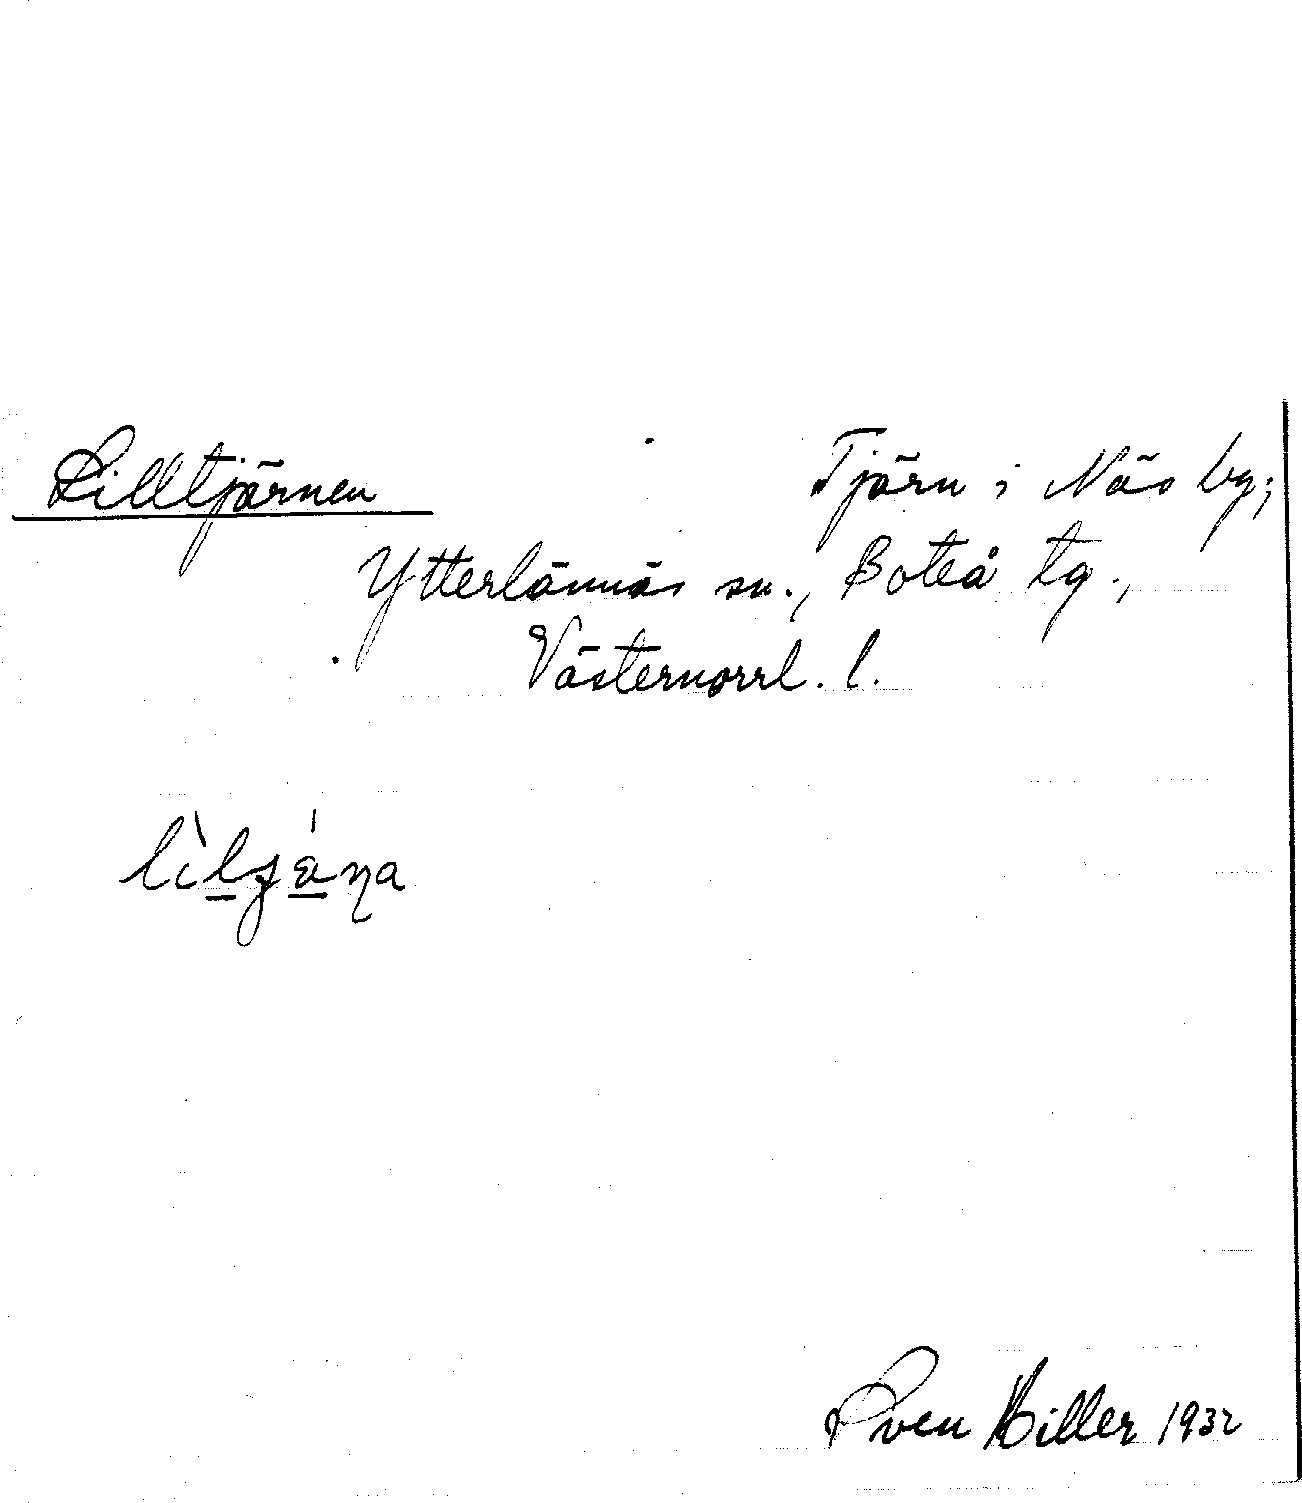 Lilltjärnen
Tjärn i Näs by;
Ytterlännäs sn., Boteå tg.,
Västernorrl. l.
Sven Hiller 1932